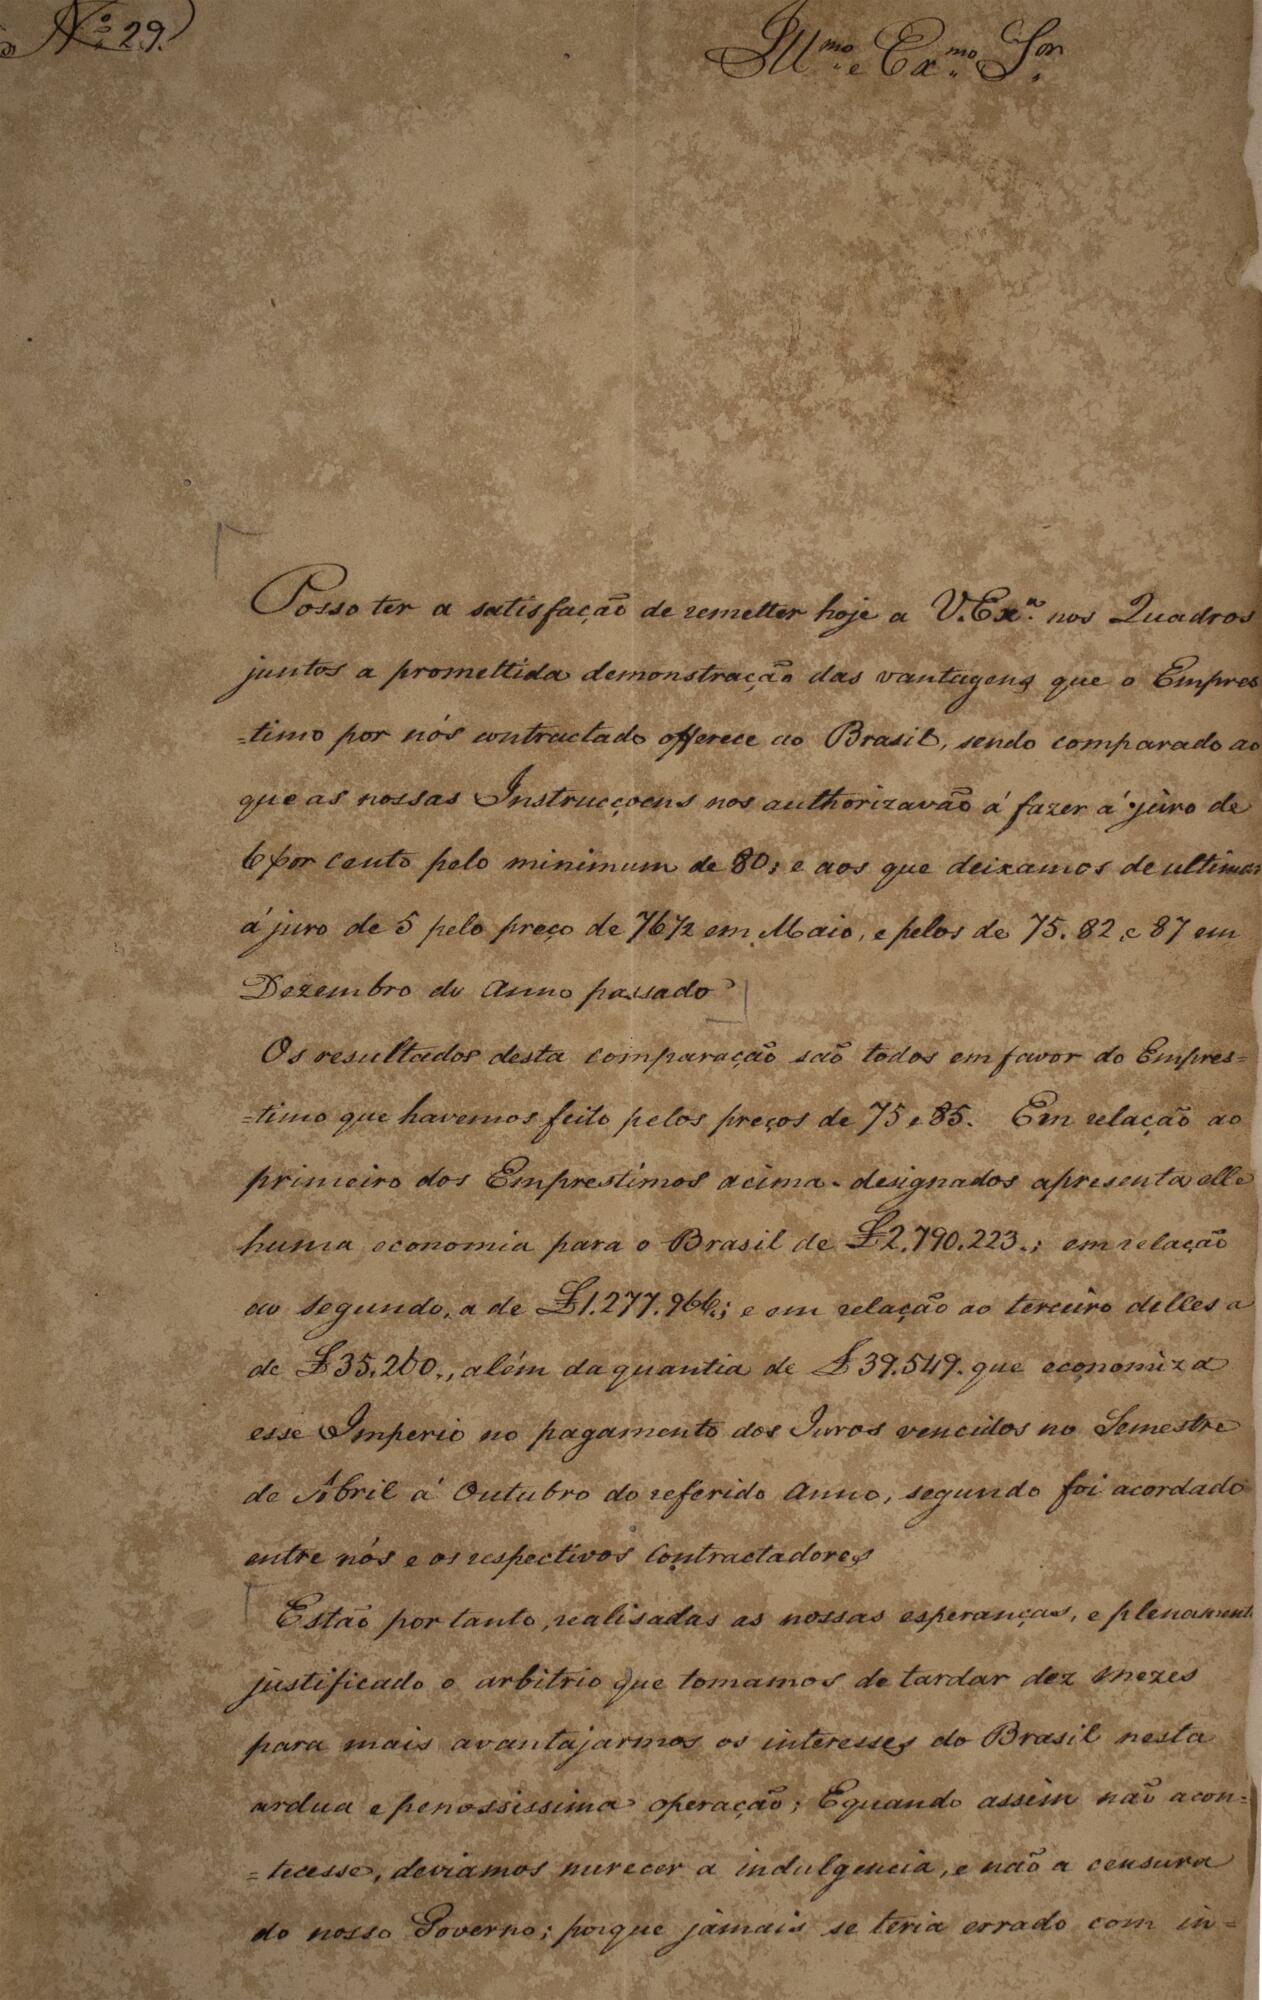 Nº 29.
Illmo e Exmo Sor
Posso ter a satisfação de remetter hoje a V. Exª. nos Quadros
juntos a promettida demonstração das vantagens que o Empres
=timo por nós contractado offerece ao Brasil, sendo comparado ao
que as nossas Instrucçoens nos authorizavão á fazer á juro de
6 por cento pelo minimum de 80; e aos que deixamos de ultimar
á juro de 5 pelo preço de 76½ em Maio, e pelos de 75. 82, e 87 em
Dezembro do Anno passado
Os resultados desta comparação saõ todos em favor do Empres=
=timo que havemos feito pelos preços de 75 e 85. Em relação ao
primeiro dos Emprestimos acima-designados apresenta elle
huma economia para o Brasil de £2.790.223.; em relação
ao segundo, a de £1.277.966.; e em relação ao terceiro delles a
de £35.260., além da quantia de £39.549. que economiza
esse Imperio no pagamento dos Juros vencidos no Semestre
de Abril á Outubro do referido Anno, segundo foi acordado
entre nós e os respectivos Contractadores
Estão por tanto, realisadas as nossas esperanças, e plenamente
justificado o arbitrio que tomamos de tardar dez mezes
para mais avantajarmos os interesses do Brasil nesta
ardua e penossissima operação; E quando assim não acon=
=tecesse, deviamos merecer a indulgencia, e não a censura
do nosso Governo; porque jámais se teria errado com in=